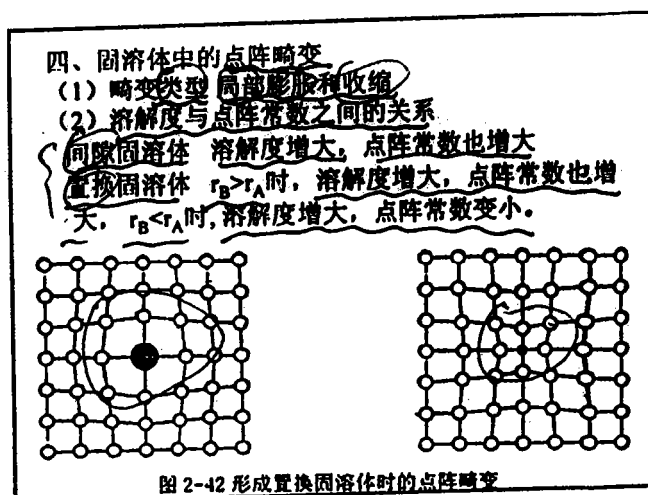 四、固溶体中的点阵畸变
（1）畸变类型 局部膨胀和收缩
（2）溶解度与点阵常数之间的关系
间隙固溶体 溶解度增大，点阵常数也增大
置换固溶体 rB>rA时，溶解度增大，点阵常数也增
大，rB<rA时，溶解度增大，点阵常数变小。
图 2-42 形成置换固溶体时的点阵畸变